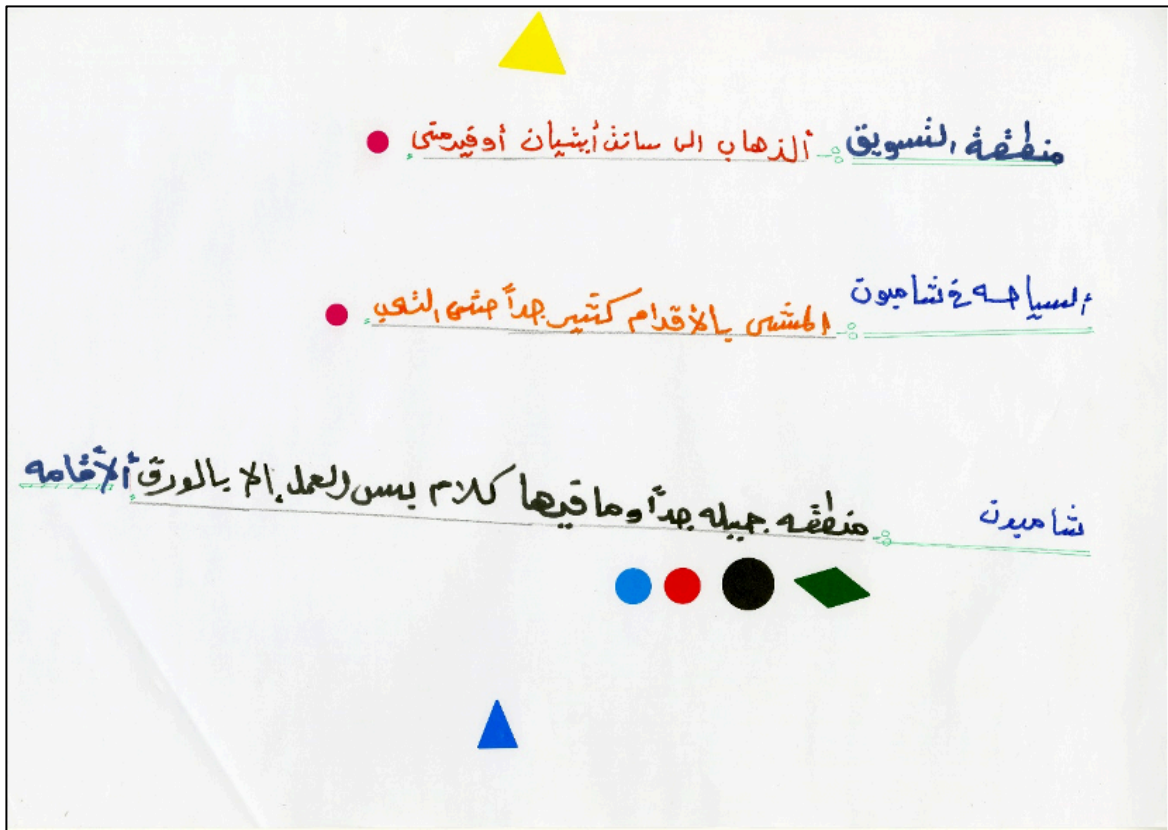 منطقة التسويق :- ألذهاب الى سانت أيتيان أو فيرمني.
ألسياحه في شامبون :- المشي بالأقدام كثير جداً حتى التعب.
شامبون :- منطقه جميله جداً وما فيها كلام بس العمل إلا بالورق ألأقامه